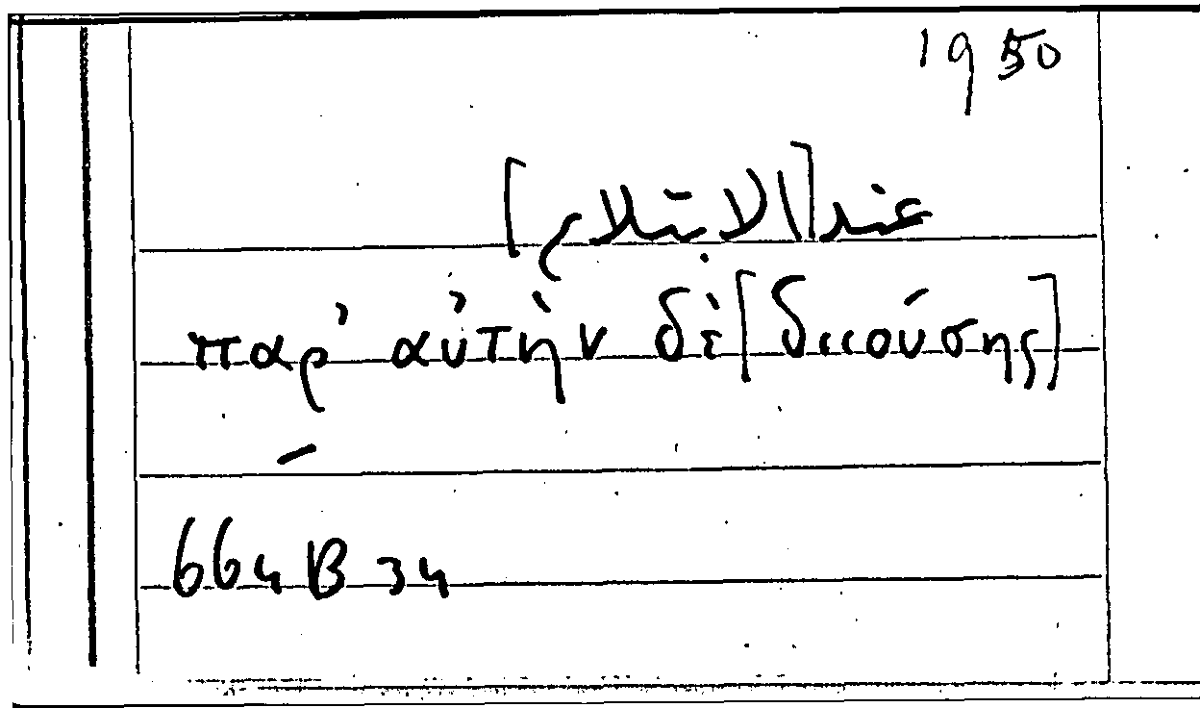 1950
عند [الابتلاع]
παρ' αὐτὴν δὲ [διιούσης]
–
664 B 34